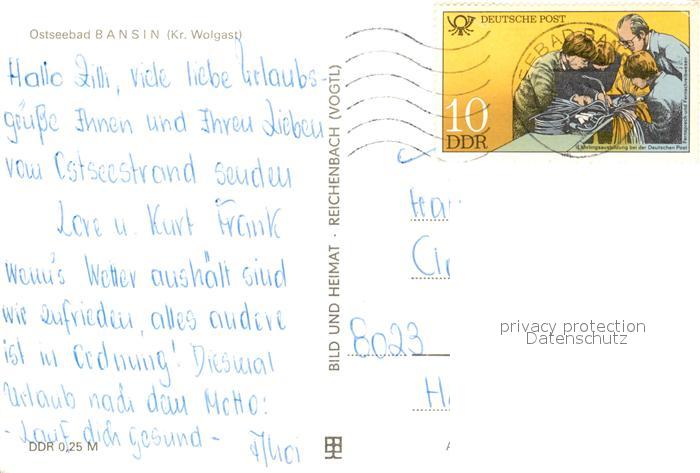 Ostseebad BANSIN (Kr. Wolgast)
Hallo Zilli, viele liebe Urlaubs-
grüße Ihnen und Ihren Lieben
vom Ostseestrand senden
Lore u. Kurt Frank
Wenn's Wetter aushält sind
wir zufrieden, alles andere
ist in Ordnung! Diesmal
Urlaub nach dem Motto:
- Lauf dich gesund -
DDR 0,25 M
BILD UND HEIMAT · REICHENBACH (VOGTL)
DEUTSCHE POST
10
DDR
Lehrlingsausbildung bei der Deutschen Post
SEEBAD BAN
8023
H
privacy protection
Datenschutz